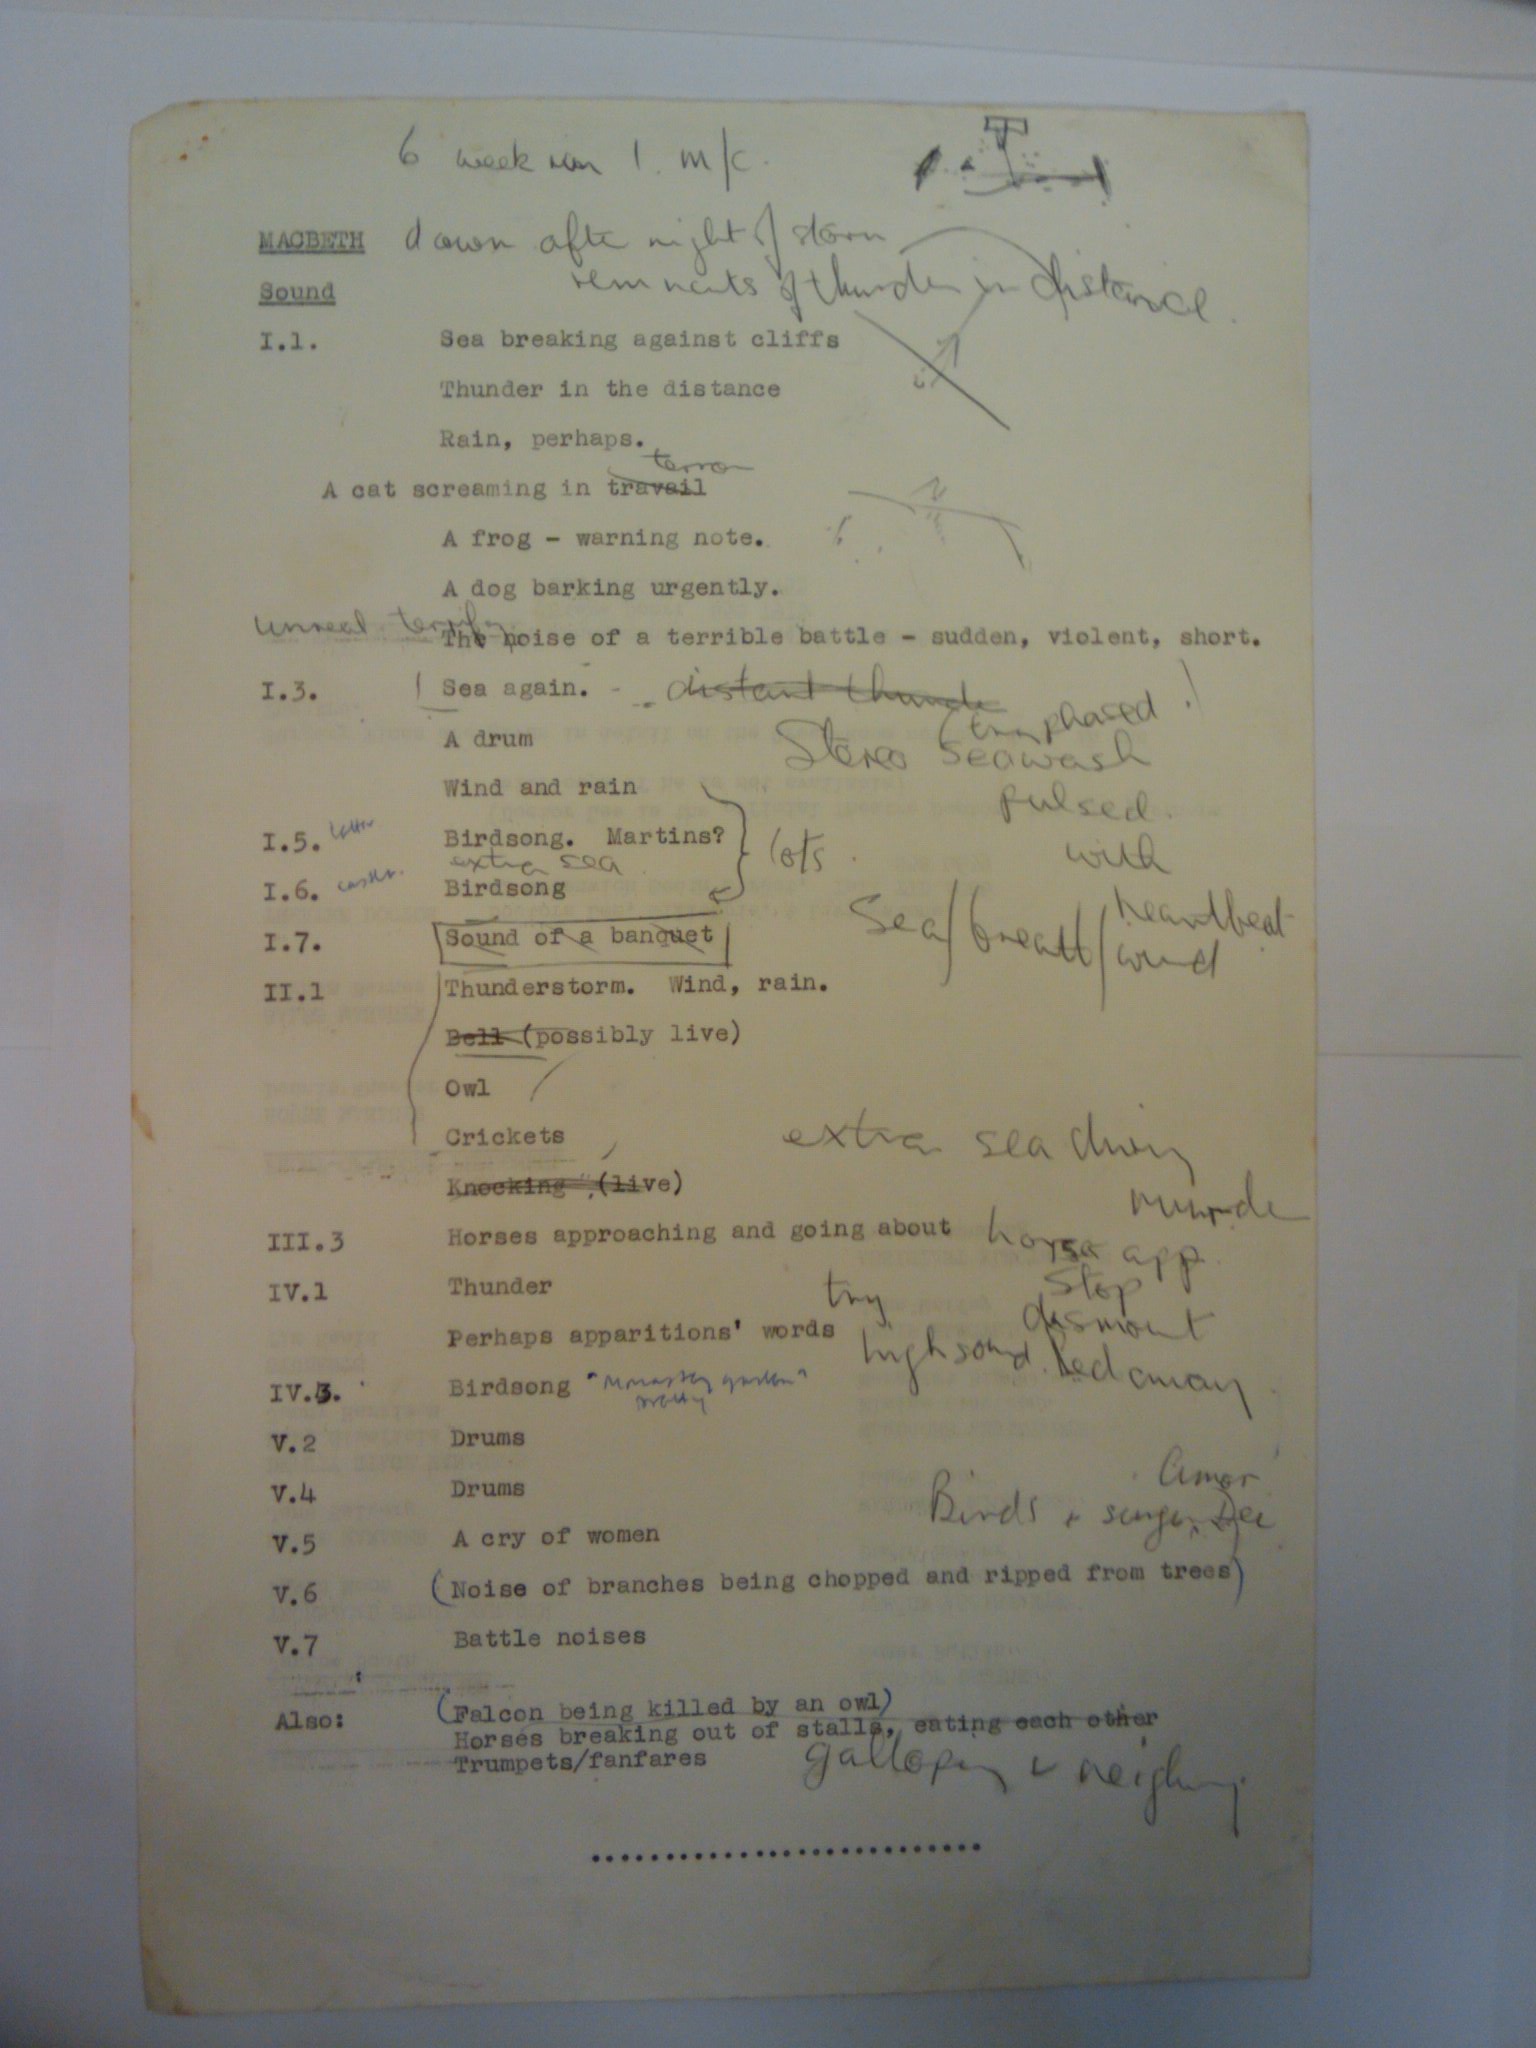 6 week run 1. m/c.
MACBETH dawn afte night of storm
remnants of thunder in distance.
Sound
I.1. Sea breaking against cliffs
Thunder in the distance
Rain, perhaps.
terror
A cat screaming in travail
A frog - warning note.
A dog barking urgently.
unreal
The noise of a terrible battle - sudden, violent, short.
I.3. Sea again. - distant thunde
(try phased!
A drum
Stereo seawash
Wind and rain
pulsed.
I.5. letter Birdsong. Martins? lots. with
extra sea
I.6. castle. Birdsong
Sea/breath/heartbeat
wind
I.7. Sound of a banquet
II.1 Thunderstorm. Wind, rain.
Bell (possibly live)
Owl
Crickets
extra sea
Knocking (live)
III.3 Horses approaching and going about horse app.
IV.1 Thunder try stop
Perhaps apparitions' words high sound. dismount
IV.3. Birdsong "monastery garden" led away
pretty
V.2 Drums
V.4 Drums
Birds +
V.5 A cry of women
V.6 (Noise of branches being chopped and ripped from trees)
V.7 Battle noises
Also: (Falcon being killed by an owl)
Horses breaking out of stalls, eating each other
Trumpets/fanfares galloping & neighing